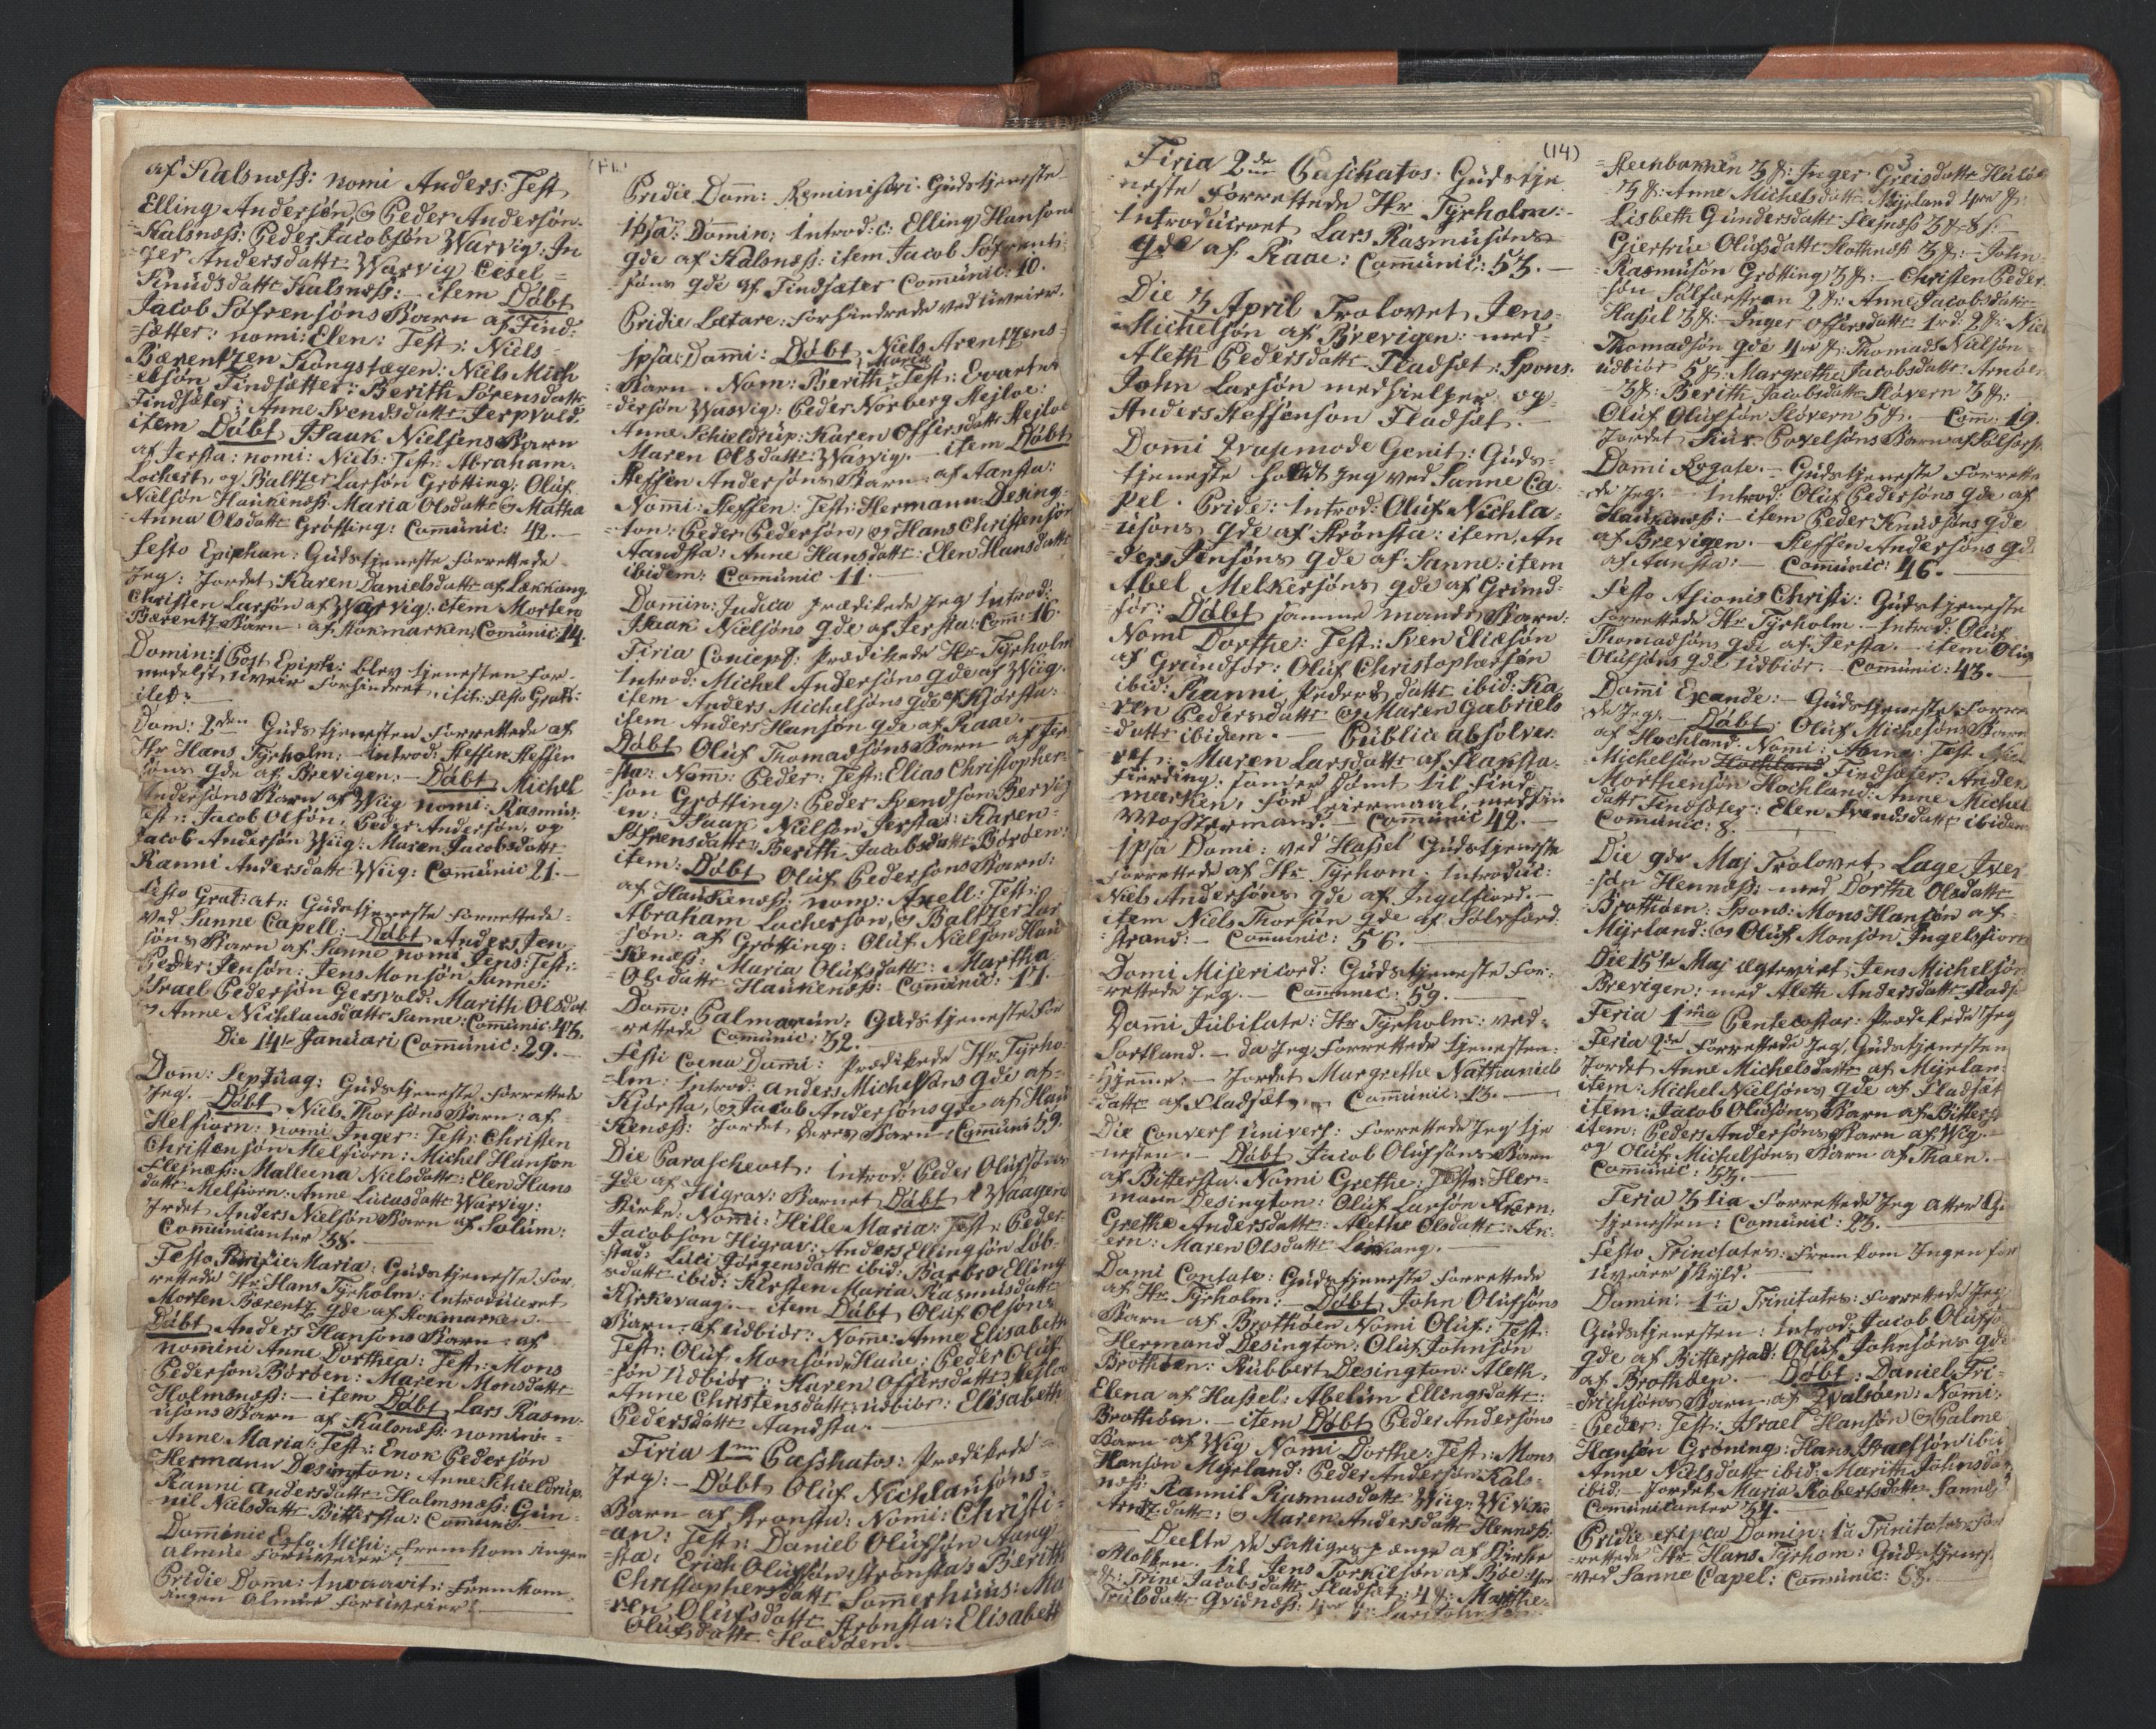 af Kalsnæss: nomi Anders: Test
Elling Andersøn, og Peder Andersøn
Kalsnæss: Peder Jacobsøn Warvig: In
ger Andersdatter Warvig Cicel
Knudsdatter Kalsnæss: item Døbt
Jacob Søfrensøns Barn af Find-
sætter: nomi: Elen: Test: Niels
Bærentzen Kongstægen: Niels Mich
elsøn Findsætter: Berith Sörensdatter
Findsæter: Anne Svendsdatter Jerpvold.
item Døbt Isaak Nielsens Barn
af Jersta: nomi: Niels: Test: Abraham
Lochert, og Baltzer Larsøn Grøtting: Oluf
Nielsøn Haukenæss: Maria Olsdatter og Matha
Anna Olsdatter Grøtting: Comunic: 42.
Festo Epiphan: Gudstjeneste forrettede
Jeg: Jordet Karen Danielsdatter af
Christen Larsøn af Warvig: item Morten
Bærentz Barn: af Stokmarken, Comunic: 14.
Domin: 1 Post Epiph: blev tjenesten for-
medelst Uveir forhindret,
Dom: 2den Gudstjenesten forrettede af
Hr Hans Tyrholm: Introd: Steffen Steffen
søns qde af Brevigen: Døbt Michel
Andersøns Barn af Wiig nomi: Rasmus:
Test: Jacob Olsøn, Peder Andersøn, og
Jacob Andersøn Wiig: Maren Jacobsdatter
Ranni Andersdatter Wiig: Comunic 21.
Festo Grat: at: Gudstjeneste forrettede
ved Sanne Capell: Døbt Anders Jen
søns Barn af Sanne nomi Jens: Test:
Peder Jensøn: Jens Monsøn Sanne:
Israel Pedersøn Gersvold: Marith Olsdat
og Anne Nichlausdatter Sanne: Comunic: 43.
Die 14de Januari Comunic: 29.
Dom: Septuag: Gudstjeneste forrettede
Jeg. Døbt Niels Thorsøns Barn: af
Melfiorn: nomi Inger: Test: Christen
Christensøn Melfiorn: Michel Hanson
Flesnæss: Mallena Nielsdatter: Elen Hans
datter Melfiorn: Anne Lucasdatter Warvig:
Jordet Anders Nielsøn Barn af Solum:
Comunicanter 38.
Festo Purific Maria: Gudstjeneste for-
rettede Hr Hans Tyrholm: Introduceret
Morten Bærentz qde af Stokmarken.
Døbt Anders Hansøns Barn: af
nomini Anne Dorthea: Test: Mons
Pedersøn Börøen: Maren Monsdatter
Holmsnæss: item Døbt Lars Rasm-
usøns Barn af Kalsnæss: nomini
Anne Maria: Test: Enok Pedersøn
Hermann Desington: Anne Schieldrup
Ranni Andersdatter Holmsnæss: Gun-
nil Nielsdatter Bittersta: Comunic.
Dominic Esto Mihi: fremkom ingen
Almue for uveier!
Pridie Dom: Invocavit: fremkom
ingen Almue for Uveier!
Pridie Dom: Reminiscri: Gudstjeneste
Ipsa: Domin: Introd: c: Elling Hansøns
qde af Kalsnæss: item Jacob Søfrens
søns qde af Findsæter Comunic: 10.
Pridie Lætare: forhindrede ved Uveier.
Ipsa: Domi: Døbt Niels Arentzens
Barn. Nom: Berith Karen: Test: Evart
dersøn Warvig: Peder Norberg Mejloe:
Anne Schieldrup: Karen Offersdatter Mejloe
Maren Olsdatter Warvig. item Døbt
Steffen Andersøns Barn af Aansta:
Nomi: Steffen: Test: Hermann Desing-
ton: Peder Pedersøn, og Hans Christensøn
Aandsta: Anne Hansdatter: Elen Hansdatter
ibidem: Comunic 11.
Domin: Judica prædikede Jeg Introd:
Isaak Nielsøns qde af Jersta: Com: 16.
Firia Concept: prædikede Hr Tyrholm
Introd: Michel Andersøns qde af Wiig:
item Anders Michelsøns qde af Kjørsta:
item Anders Hansøn qde af Raae.
Døbt Oluf Thomadsøns Barn af Jer
sta: Nom: Peder: Test: Elias Christopher-
søn Grøtting: Peder Svendsøn Bervig
en: Isaak Nielsøn Jersta: Karen
Søfrensdatter: Berith Jacobsdatter Börøen:
item: Døbt Oluf Pedersøns Barn:
af Haukenæss: nom: Axell: Test:
Abraham Lochersøn, og Baltzer Lar
søn: af Grøtting: Oluf Nielsøn Hau
kenæss: Maria Olufsdatter: Martha
Olsdatter Haukenæss: Comunic: 17.
Dom: Palmarum: Gudstjeneste for
rettede Comunic: 32.
Festi Coena Domi: Prædikede Hr Tyrho-
lm: Introd: Anders Michelsøns qde af
Kjørsta, og Jacob Andersøns qde af Hau
kenæss: Jordet deres Barn: Comunic 59.
Die Parascheost: Introd: Peder Olufsøns
qde af Higrav: Barnet Døbt i Waagens
Kirke: Nomi: Hille Maria: Test: Peder
Jacobsøn Higrav: Anders Ellingsøn Løb-
stad: Luci Jörgensdatter ibid: Barbro Elling
sdatter ibid: Kirsten Maria Rasmusdatter
Kirkevaag. item Døbt Oluf Olsøns
Barn: af Udbiör: Nom: Anne Elisabeth
Test: Oluf Monsøn, Haue: Peder Oluf-
søn Udbiör: Karen Offersdatter Mejloe
Anne Christensdatter, Udbiör: Elisabeth
Pedersdatter Aandsta.
Firia 1ma Paschatos: Prædikede
Jeg: Døbt Oluf Nichlausøns
Barn af Strønsta: Nomi: Christi-
an: Test: Daniel Olufsøn Aang
sta: Erich Olufsøn Strønsta: Berith
Christophersdatter Sommerhuus: Ma
ren Olufsdatter Strønsta: Elisabeth
Olufsdatter Holdøen.
(14)
Firia 2den Paschatos: Gudstje
neste forrettede Hr Tyrholm:
Introduceret Lars Rasmusøns
qde af Raae: Comunic: 53.
Die 3 April Trolovet Jens
Michelsøn af Brevigen: med
Aleth Pedersdatter Fladsæt: Spons:
John Larsøn medhielper og
Anders Steffenson Fladsæt.
Domi Qvasimodo Genit: Guds-
tjeneste holdt Jeg ved Sanne Ca-
pel. Pridie: Introd: Oluf Nichla-
usøns qde af Strønsta: item, An
ders Jensøns qde af Sanne: item
Abel Melkersøns qde af Grund-
för: Døbt samme mands Barn:
Nomi Dorthe: Test: Sven Eliæsøn
af Grundför: Oluf Christophersøn
ibid: Ranni Pedersdatter ibid: Ka
ren Pedersdatter og Maren Gabriels
datter ibidem. Publice absolver
ret: Maren Larsdatter af Flaksta-
fierding: som er dömt til Find-
marken, for Leiermaal, med sin
Mostermand. Comunic 42.
Ipsa Domi: ved Hassel Gudstjeneste
forrettede af Hr. Tyrhom: Introduc:
Niels Andersøns qde af Ingelfiord.
item Niels Thorsøn qde af
strand: Comunic: 56.
Domi Misericord: Gudstjeneste for-
rettede Jeg. Comunic: 59.
Domi Jubilate: Hr Tyrholm: ved
Sortland. da Jeg forrettede tjenesten:
Hjemme: Jordet Margrethe Nathaniels
datter af Fladsæt. Comunic: 23.
Die Convers Univers: forrettede Jeg tje
nesten. Døbt Jacob Olufsøns Barn
af Bittersta: Nomi Grethe: Test: Her-
mann Desington: Oluf Larsøn Ærn:
Grethe Andersdatter: Alethe Olsdatter: Æn-
ern: Maren Olsdatter
Domi Contate: Gudstjeneste forrettede
af Hr Tyrholm: Døbt John Olufsøns
Barn af Brothøen Nomi Oluf: Test:
Hermand Desington: Oluf Johnsøn
Brothöen: Rubbert Desington: Aleth:
Elena af Hassel: Abelun Ellingsdatter:
Brothöen. item Døbt Peder Andersøns
Barn af Wig Nomi Dorthe: Test: Mons
Hansøn Myrland: Peder Andersøn Kals-
næss: Rannil Rasmusdatter Wiig: Wiviche
Arntzdatter: og Maren Andersdatter Hennæss:
Deelte de fattiges penge af Kirke
Blokken. til Jens Torkilsøn af Böe 4re
: Trine Jacobsdatter Fladsæt: 4 : Marithe
Trulsdatter Gvidnæss:
Steenbannen 3 : Inger Greisdatter
3 : Anne Michelsdatter Myrland 4re :
Lisbeth Gundersdatter Flesnæss 3 8 s:
Giertrue Olufsdatter Slotnæss 3 : John
Rasmusøn Grøtting 3 : Christen Peder
søn Sølfærstran 2 : Anne Jacobsdatter
Hassel 3 : Inger Offersdatter 2 : Niel
Thomadsøn qde 4re : Thomads Nielsøn
Udbiör 5 : Margrethe Jacobsdatter
3 : Berith Jacobsdatter Skövern 3 :
Oluf Olufsøn Skövern 5 . Com: 19.
Jordet Povelsøns Barn af
Domi Rogate. Gudstjeneste forrette
de Jeg. Introd: Oluf Pedersøns qde af
Haukenæss: item Peder Knudsøns qde
af Brevigen. Steffen Andersøns qde
af Aansta: Comunic: 46.
Festo Asionis Christi: Gudstjeneste
forrettede Hr Tyrholm. Introd: Oluf
Thomadsøns qde af Jersta. item Oluf
Olufsøns qde Udbiör. Comunic: 43.
Domi Exaude: Gudstjeneste forre
de Jeg. Døbt: Oluf Michelsøns Barn
af Hochland. Nomi: Anne: Test Niel
Michelsøn Hochland Findsæter: Anders
Morthensøn Hochland: Anne Michel
datter Findsæter: Elen Svendsdatter ibidem
Comunic: 8.
Die 9de Maj Trolovet Lage Iver
søn Hennæss: med Dorthe Olsdatter
Brothöen: Spons: Mons Hansøn af
Myrland: og Oluf Monsøn Ingelsfiorn
Die 15de Maj ægteviet Jens Michelsøn
Brevigen: med Aleth Andersdatter Fladse
Feria 1ma Pentecostas: Prædikede Jeg
Feria 2de forrettede Jeg Gudstjenesten
Jordet Anne Michelsdatter af Myrlan:
item: Michel Nielsøns qde af Fladsæt
item: Jacob Olufsøns Barn af Bitters
item: Peders Andersøns Barn af Wig.
og Oluf Michelsøns Barn af Thaen.
Comunic: 53.
Feria 3tia forrettede Jeg atter G.
tjenesten: Comunic: 23.
Festo Trinitates: fremkom Ingen for
uveier skyld.
Domin: 1a Trinitates: forrettede Jeg
Gudstjenesten: Introd: Jacob Olufsø
qde af Bitterstad: Oluf Johnsøns qde
af Brothöen. Døbt: Daniel Fri-
drichsøns Barn af Qvalsöen: Nomi:
Peder: Test: Israel Hansøn og Palme
Hansøn Gröning: Hans Israelsøn ibid
Anne Nielsdatter ibid: Marith Johnsdat
ibid: Jordet Maria Robertsdatter Sannd
Comunicanter 34.
Pridie et ipsa Domin: 1a Trinitates for
rettede Hr Hans Tyrhom: Gudstjenes
ved Sanne Capel: Comunic: 68.